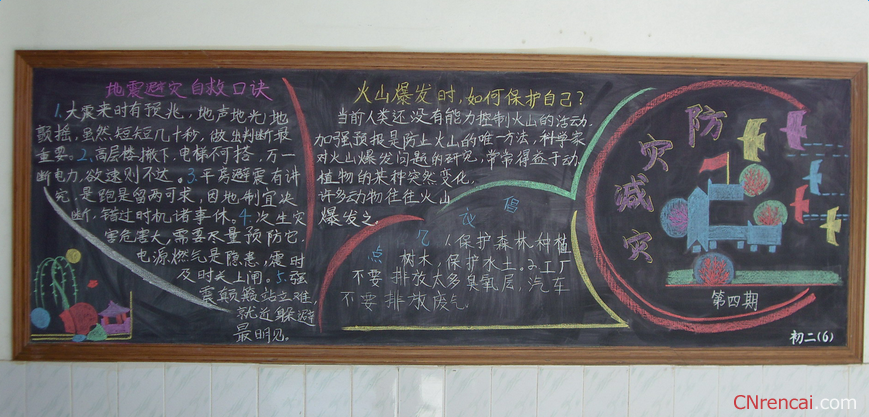 地震避灾自救口诀
1.大震来时有预兆,地声地光地
颤摇,虽然短短几十秒,做出判断最
重要。2.高层楼撤下,电梯不可搭,万一
断电力,欲速则不达。3.平房避震有讲
究,是跑是留两可求,因地制宜决
断,错过时机诸事休。4.次生灾
害危害大,需要尽量预防它,
电源燃气是隐患,震时
及时关上闸。5.强
震颠簸站立难,
就近躲避
最明见。
火山爆发时,如何保护自己?
当前人类还没有能力控制火山的活动.
加强预报是防止火山的唯一方法,科学家
对火山爆发问题的研究,常常得益于动.
植物的某种突然变化.
许多动物往往火山
爆发之.
倡
议
点
1.保护森林.种植
树木,保护水土。2.工厂
不要排放太多臭氧层,汽车
不要排放废气.
防
灾
减
灾
第四期
初二(6)
CNrencai.com